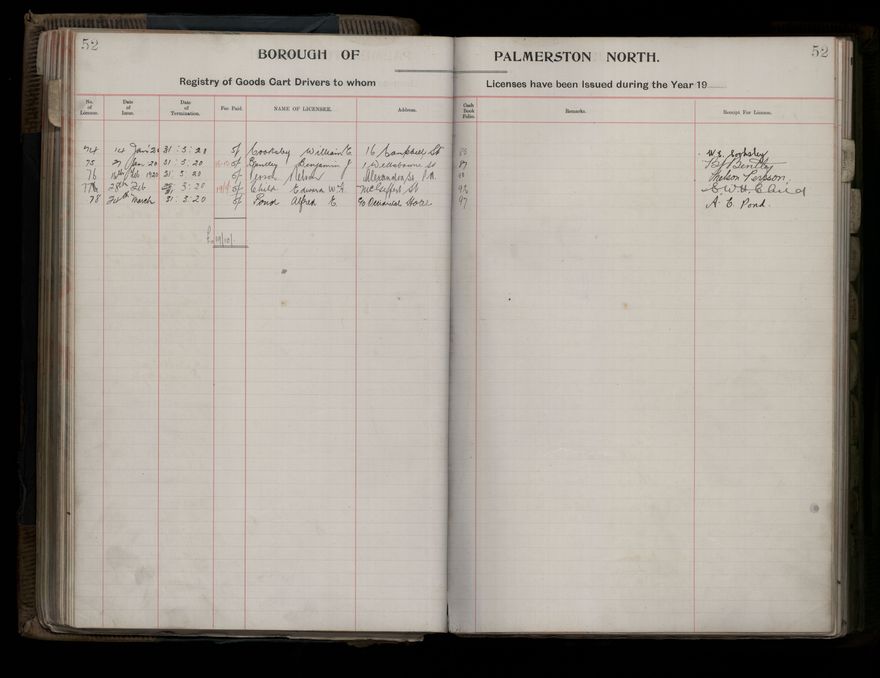 52 52
BOROUGH OF PALMERSTON NORTH.
Registry of Goods Cart Drivers to whom Licenses have been Issued during the Year 19
No. of License. Date of Issue. Date of Termination. Fee Paid. NAME OF LICENSEE. Address. Cash Book Folio. Remarks. Receipt For License.
74 14 Jan 20 31 : 3 : 20 5/ Cooksley William E 16 Campbell St W. E. Cooksley
75 27 Jan 20 31 : 3 : 20 5/ Bentley Benjamin J 87 B J Bentley
76 Feb 1920 31 : 3 : 20 5/ Nelson Alexandra St P.N. Nelson
77 28th Feb 31 3 : 20 5/ Child Edward W H St 92 E W H Child
78 March 31 : 3 : 20 5/ Pond Alfred E C/o Occidental Hotel 97 A. E. Pond.